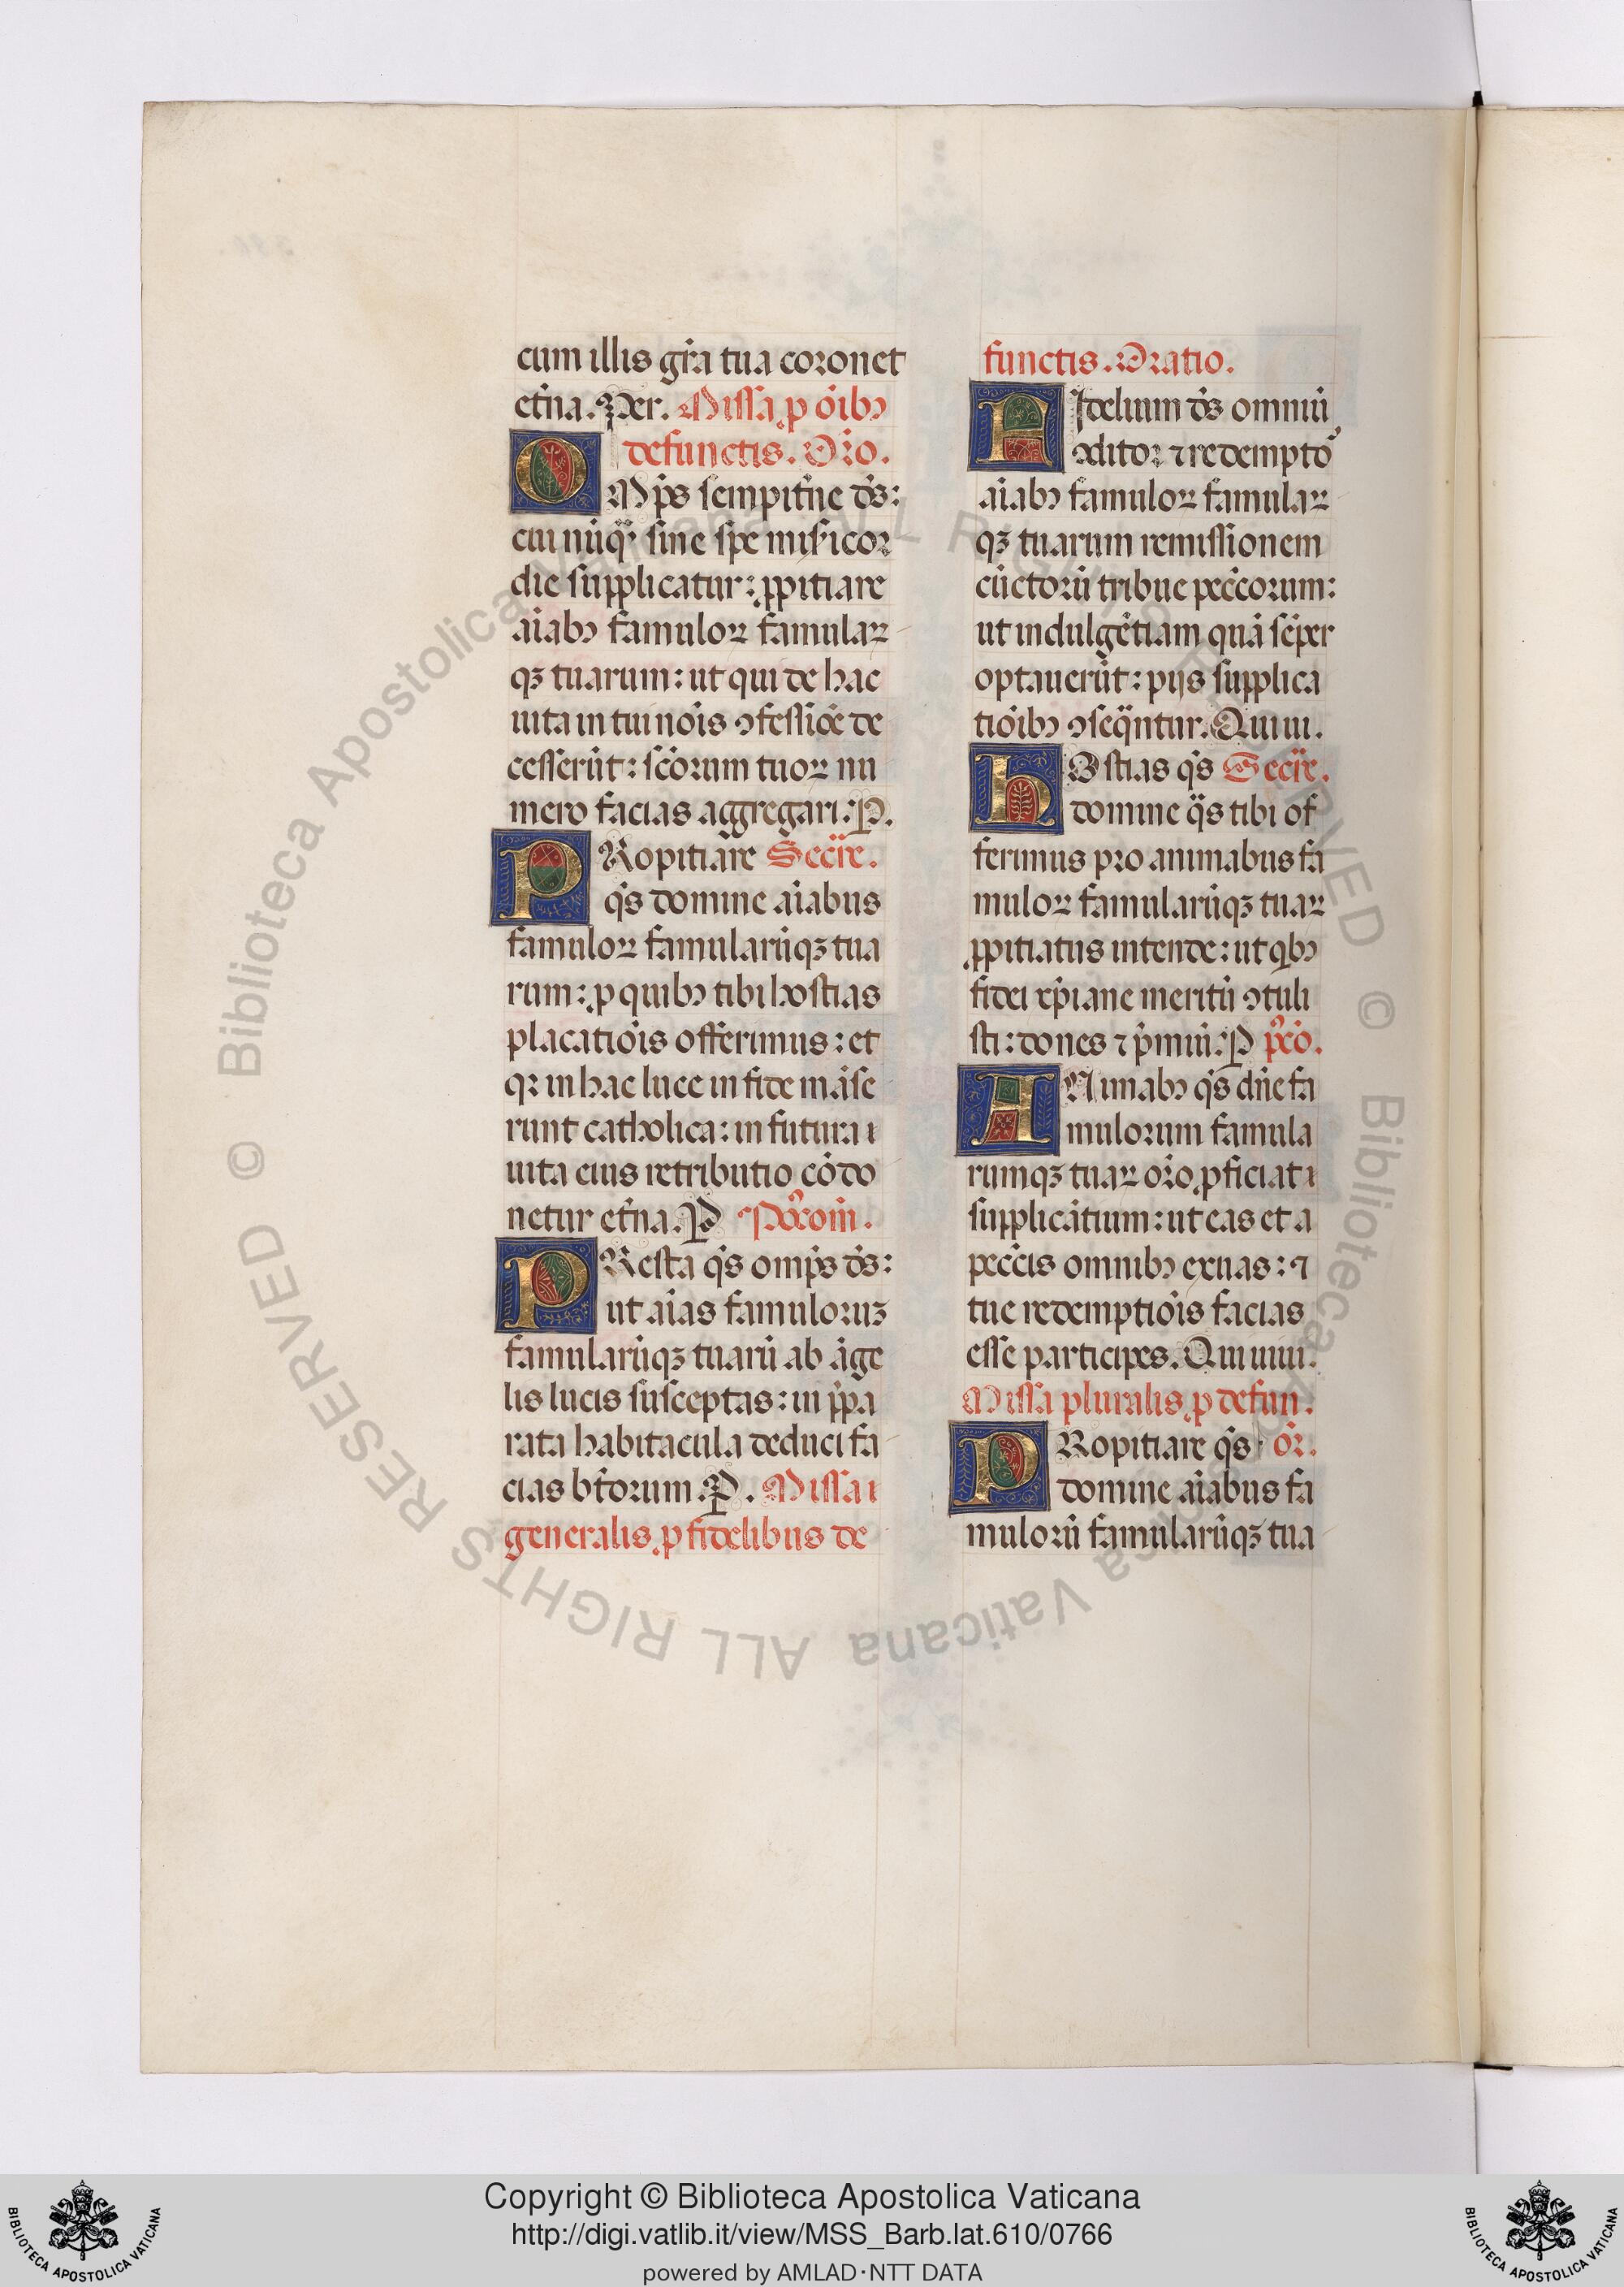 cum illis gr̃a tua coronet
et̃na. Per. Missa ꝓ oĩbꝰ
defunctis. Or̃o.
OMp̃s sempit̃ne ds̃:
cui nũqͣ sine spe mis̃icor
die supplicatur: ꝓpitiare
aĩabꝰ famuloꝝ famulaꝝ
qꝫ tuarum: ut qui de hac
uita in tui noĩs ꝯfessiõe de
cesserũt: sc̃orum tuoꝝ nu
mero facias aggregari: P.
PRopitiare Secr̃e.
qs̃ domine aĩabus
famuloꝝ famularũqꝫ tua
rum: ꝓ quibꝰ tibi hostias
placatiõis offerimus: et
qꝛ in hac luce in fide mãse
runt catholica: in futura
uita eius retributio cõdo
netur et̃na. P Pꝰcom̃.
PResta qs̃ omp̃s ds̃:
ut aĩas famuloruꝫ
famularũqꝫ tuarũ ab ãge
lis lucis susceptas: in p̃pa
rata habitacula deduci fa
cias bt̃orum. P. Missa
generalis ꝓ fidelibus de
functis. Oratio.
FIdelium ds̃ omniũ
ꝯditor ⁊ redemptoꝛ
aĩabꝰ famuloꝝ famulaꝝ
qꝫ tuarum remissionem
cũctorũ tribue pecc̃orum:
ut indulgẽtiam quã sẽper
optauerũt: pijs supplica
tiõibꝰ ꝯseq̃ntur. Qui ui.
HOstias qs̃ Secr̃e.
domine q̃s tibi of
ferimus pro animabus fa
muloꝝ famularũqꝫ tuaꝝ
ꝓpitiatus intende: ut qͥbꝰ
fidei xp̃iane meritũ ꝯtuli
sti: dones ⁊ p̃miũ: P pꝰcõ.
ANimabꝰ qs̃ dñe fa
mulorum famula
rumqꝫ tuaꝝ or̃o ꝓficiat
supplicãtium: ut eas et a
pecc̃is omnibꝰ exuas: ⁊
tue redemptiõis facias
esse participes. Qui uiui.
Missa pluralis ꝓ defun.
PRopitiare qs̃ or̃.
domine aĩabus fa
mulorũ famularũqꝫ tua
© Biblioteca Apostolica Vaticana ALL RIGHTS RESERVED © Biblioteca Apostolica Vaticana ALL RIGHTS RESERVED
Copyright © Biblioteca Apostolica Vaticana
http://digi.vatlib.it/view/MSS_Barb.lat.610/0766
powered by AMLAD·NTT DATA
BIBLIOTECA APOSTOLICA VATICANA
BIBLIOTECA APOSTOLICA VATICANA